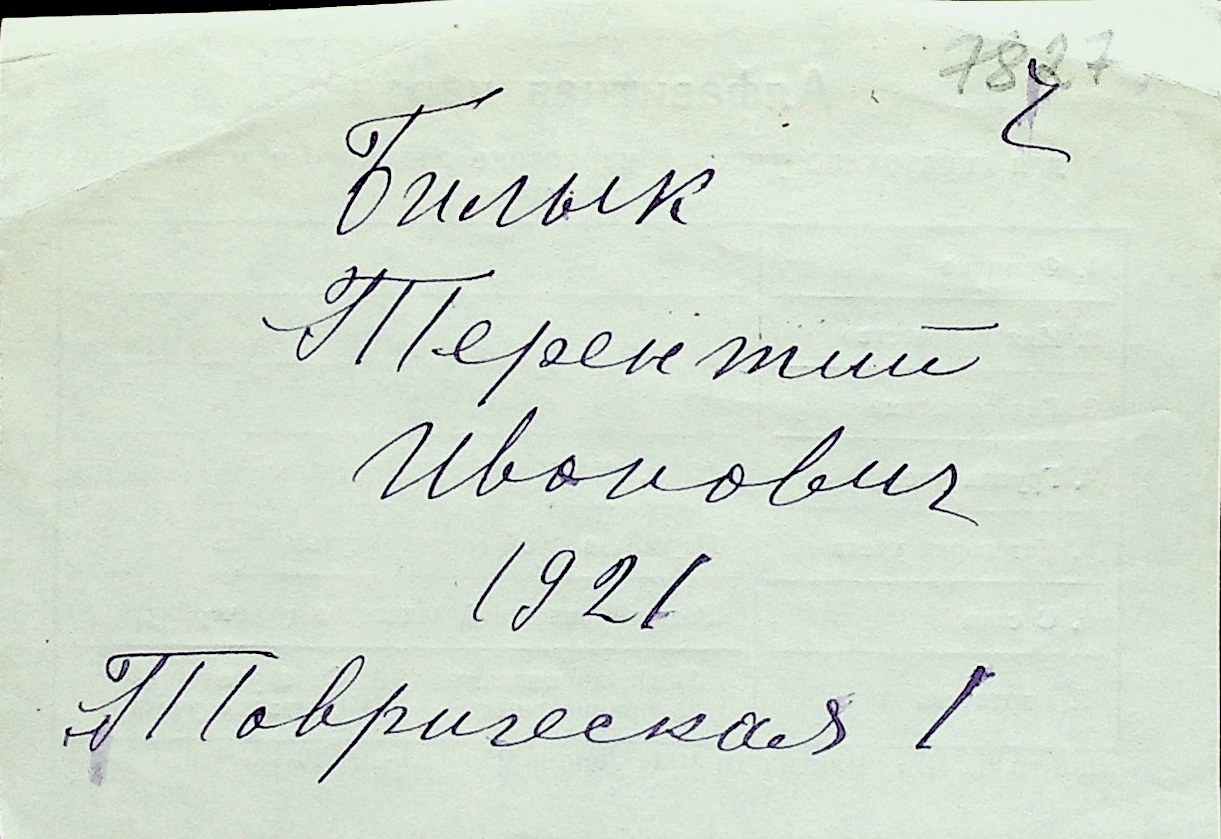 7827
ч
Билык
Терентий
Иванович
1921
Таврическая 1